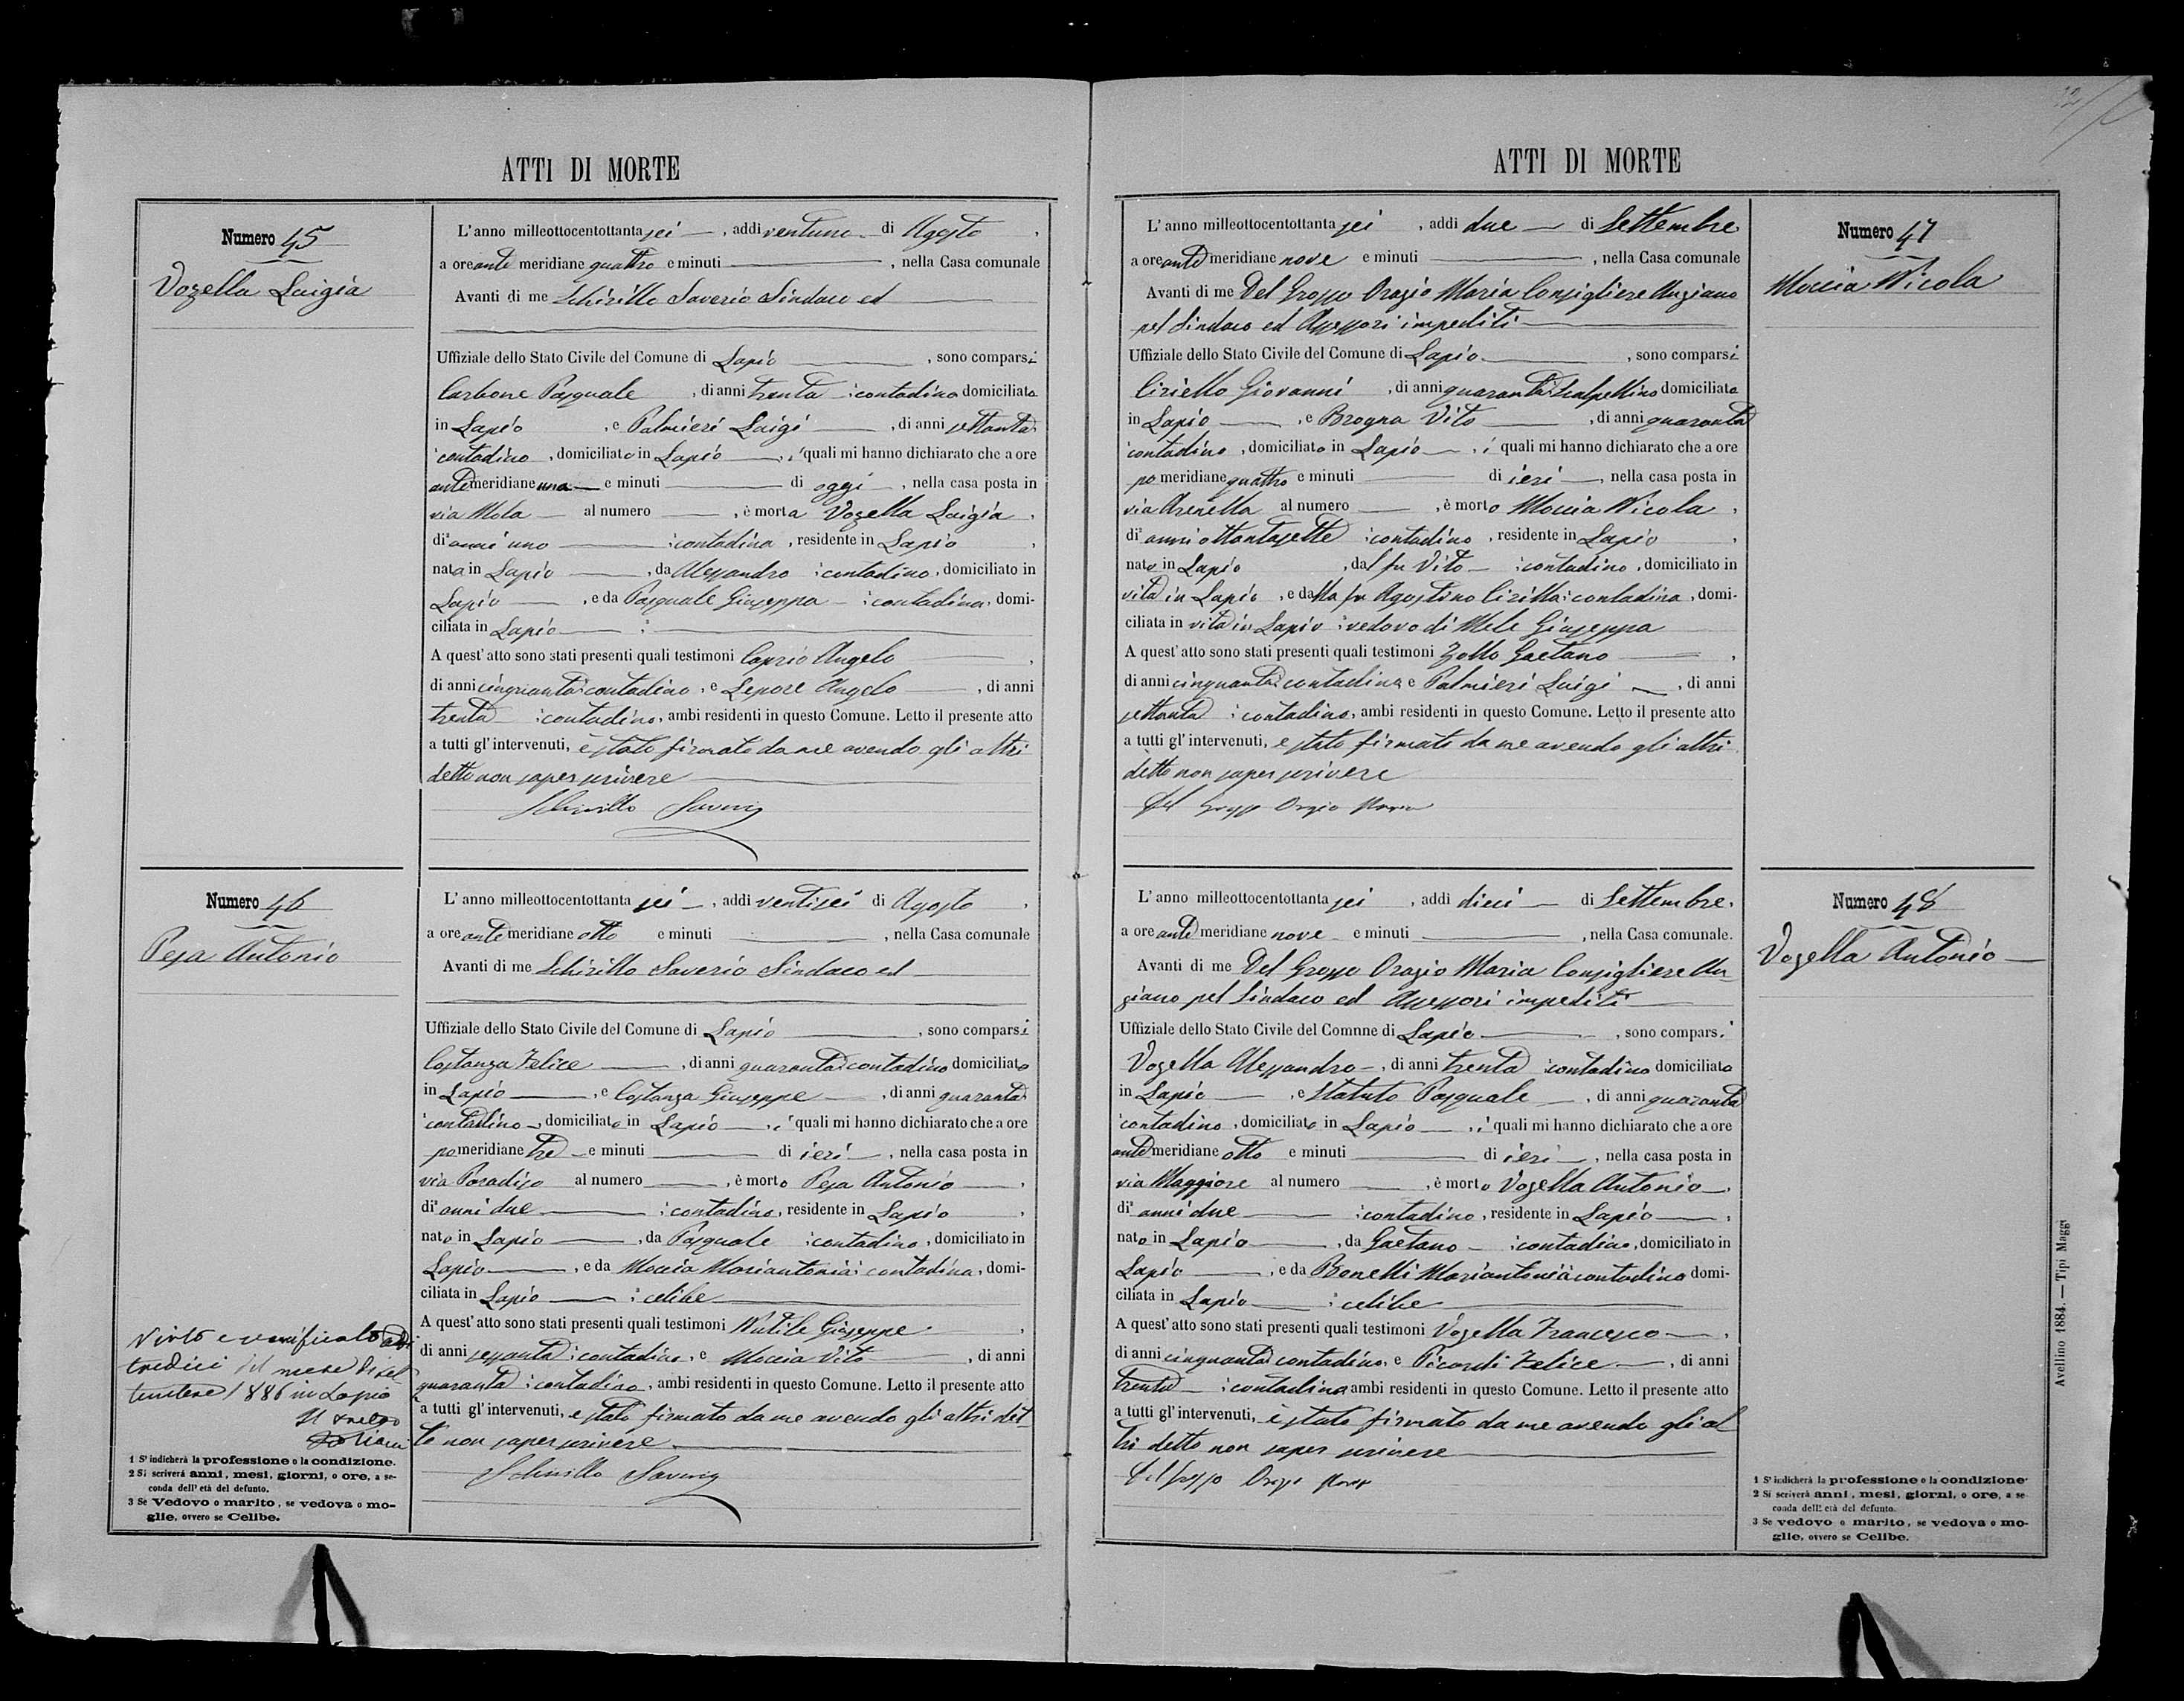 ATTI DI MORTE
Numero 45
Vozella Luigia
L'anno milleottocentottanta sei, addi ventuno di Agosto,
a ore ante meridiane quattro e minuti, nella Casa comunale
Avanti di me Schirillo Saverio Sindaco ed
Uffiziale dello Stato Civile del Comune di Lapio, sono comparsi
Carbone Pasquale, di anni trenta contadino domiciliato
in Lapio, e Palmieri Luigi, di anni settanta
contadino, domiciliato in Lapio, i quali mi hanno dichiarato che a ore
antemeridiane una e minuti di oggi, nella casa posta in
via Mola al numero, è morta Vozella Luigia,
di anni uno contadina, residente in Lapio,
nata in Lapio, da Alessandro contadino, domiciliato in
Lapio, e da Pasquale Giuseppa contadina, domi-
ciliata in Lapio
A quest'atto sono stati presenti quali testimoni Caprio Angelo,
di anni cinquanta contadino, e Lepore Angelo, di anni
trenta contadino, ambi residenti in questo Comune. Letto il presente atto
a tutti gl'intervenuti, è stato firmato da me avendo gli altri
detto non saper scrivere
Schirillo Saverio
Numero 46
Pesa Antonio
L'anno milleottocentottanta sei, addi ventisei di Agosto,
a ore ante meridiane otto e minuti, nella Casa comunale
Avanti di me Schirillo Saverio Sindaco ed
Uffiziale dello Stato Civile del Comune di Lapio, sono comparsi
Costanza Felice, di anni quaranta contadino domiciliato
in Lapio, e Costanza Giuseppe, di anni quaranta
contadino, domiciliato in Lapio, i quali mi hanno dichiarato che a ore
pomeridiane tre e minuti di ieri, nella casa posta in
via Paradiso al numero, è morto Pesa Antonio,
di anni due contadino, residente in Lapio,
nato in Lapio, da Pasquale contadino, domiciliato in
Lapio, e da Moccia Mariantonia contadina, domi-
ciliata in Lapio celibe
A quest'atto sono stati presenti quali testimoni Nutile Giuseppe,
di anni sessanta contadino, e Moccia Vito, di anni
quaranta contadino, ambi residenti in questo Comune. Letto il presente atto
a tutti gl'intervenuti, è stato firmato da me avendo gli altri det-
to non saper scrivere
Schirillo Saverio
Visto e verificato addi
tredici del mese di set
tembre 1886 in Lapio
Il
1 S'indicherà la professione o la condizione.
2 Si scriverà anni, mesi, giorni, o ore, a se-
conda dell'età del defunto.
3 Se Vedovo o marito, se vedova o mo-
glie, ovvero se Celibe.
ATTI DI MORTE
Numero 47
Moccia Nicola
L'anno milleottocentottanta sei, addi due di Settembre
a ore ante meridiane nove e minuti, nella Casa comunale
Avanti di me Del Grosso Orazio Maria Consigliere Anziano
pel Sindaco ed Assessori impediti
Uffiziale dello Stato Civile del Comune di Lapio, sono comparsi
Ciriello Giovanni, di anni quaranta scalpellino domiciliato
in Lapio, e Brogna Vito, di anni quaranta
contadino, domiciliato in Lapio, i quali mi hanno dichiarato che a ore
po meridiane quattro e minuti di ieri, nella casa posta in
via Arenella al numero, è morto Moccia Nicola,
di anni ottantasette contadino, residente in Lapio,
nato in Lapio, dal fu Vito contadino, domiciliato in
vita in Lapio, e dalla fu Agostino Cirilla contadina, domi-
ciliata in vita in Lapio vedovo di Mele Giuseppa
A quest'atto sono stati presenti quali testimoni Zollo Gaetano,
di anni cinquanta contadino e Palmieri Luigi, di anni
settanta contadino, ambi residenti in questo Comune. Letto il presente atto
a tutti gl'intervenuti, è stato firmato da me avendo gli altri
detto non saper scrivere
Del Grosso Orazio Maria
Numero 48
Vozella Antonio
L'anno milleottocentottanta sei, addi dieci di Settembre,
a ore ante meridiane nove e minuti, nella Casa comunale.
Avanti di me Del Grosso Orazio Maria Consigliere An-
ziano pel Sindaco ed Assessori impediti
Uffiziale dello Stato Civile del Comnne di Lapio, sono comparsi
Vozella Alessandro, di anni trenta contadino domiciliato
in Lapio, e Statuto Pasquale, di anni quaranta
contadino, domiciliato in Lapio, i quali mi hanno dichiarato che a ore
antemeridiane otto e minuti di ieri, nella casa posta in
via Maggiore al numero, è morto Vozella Antonio,
di anni due contadino, residente in Lapio,
nato in Lapio, da Gaetano contadino, domiciliato in
Lapio, e da Bonelli Mariantonia contadina domi-
ciliata in Lapio celibe
A quest'atto sono stati presenti quali testimoni Vozella Francesco,
di anni cinquanta contadino, e Picardi Felice, di anni
trenta contadino ambi residenti in questo Comune. Letto il presente atto
a tutti gl'intervenuti, è stato firmato da me avendo gli al
tri detto non saper scrivere
Del Grosso Orazio Maria
1 S'indicherà la professione o la condizione
2 Si scriverà anni, mesi, giorni, o ore, a se
conda dell'età del defunto.
3 Se vedovo o marito, se vedova o mo-
glie, ovvero se Celibe.
Avellino 1884. — Tipi Maggi